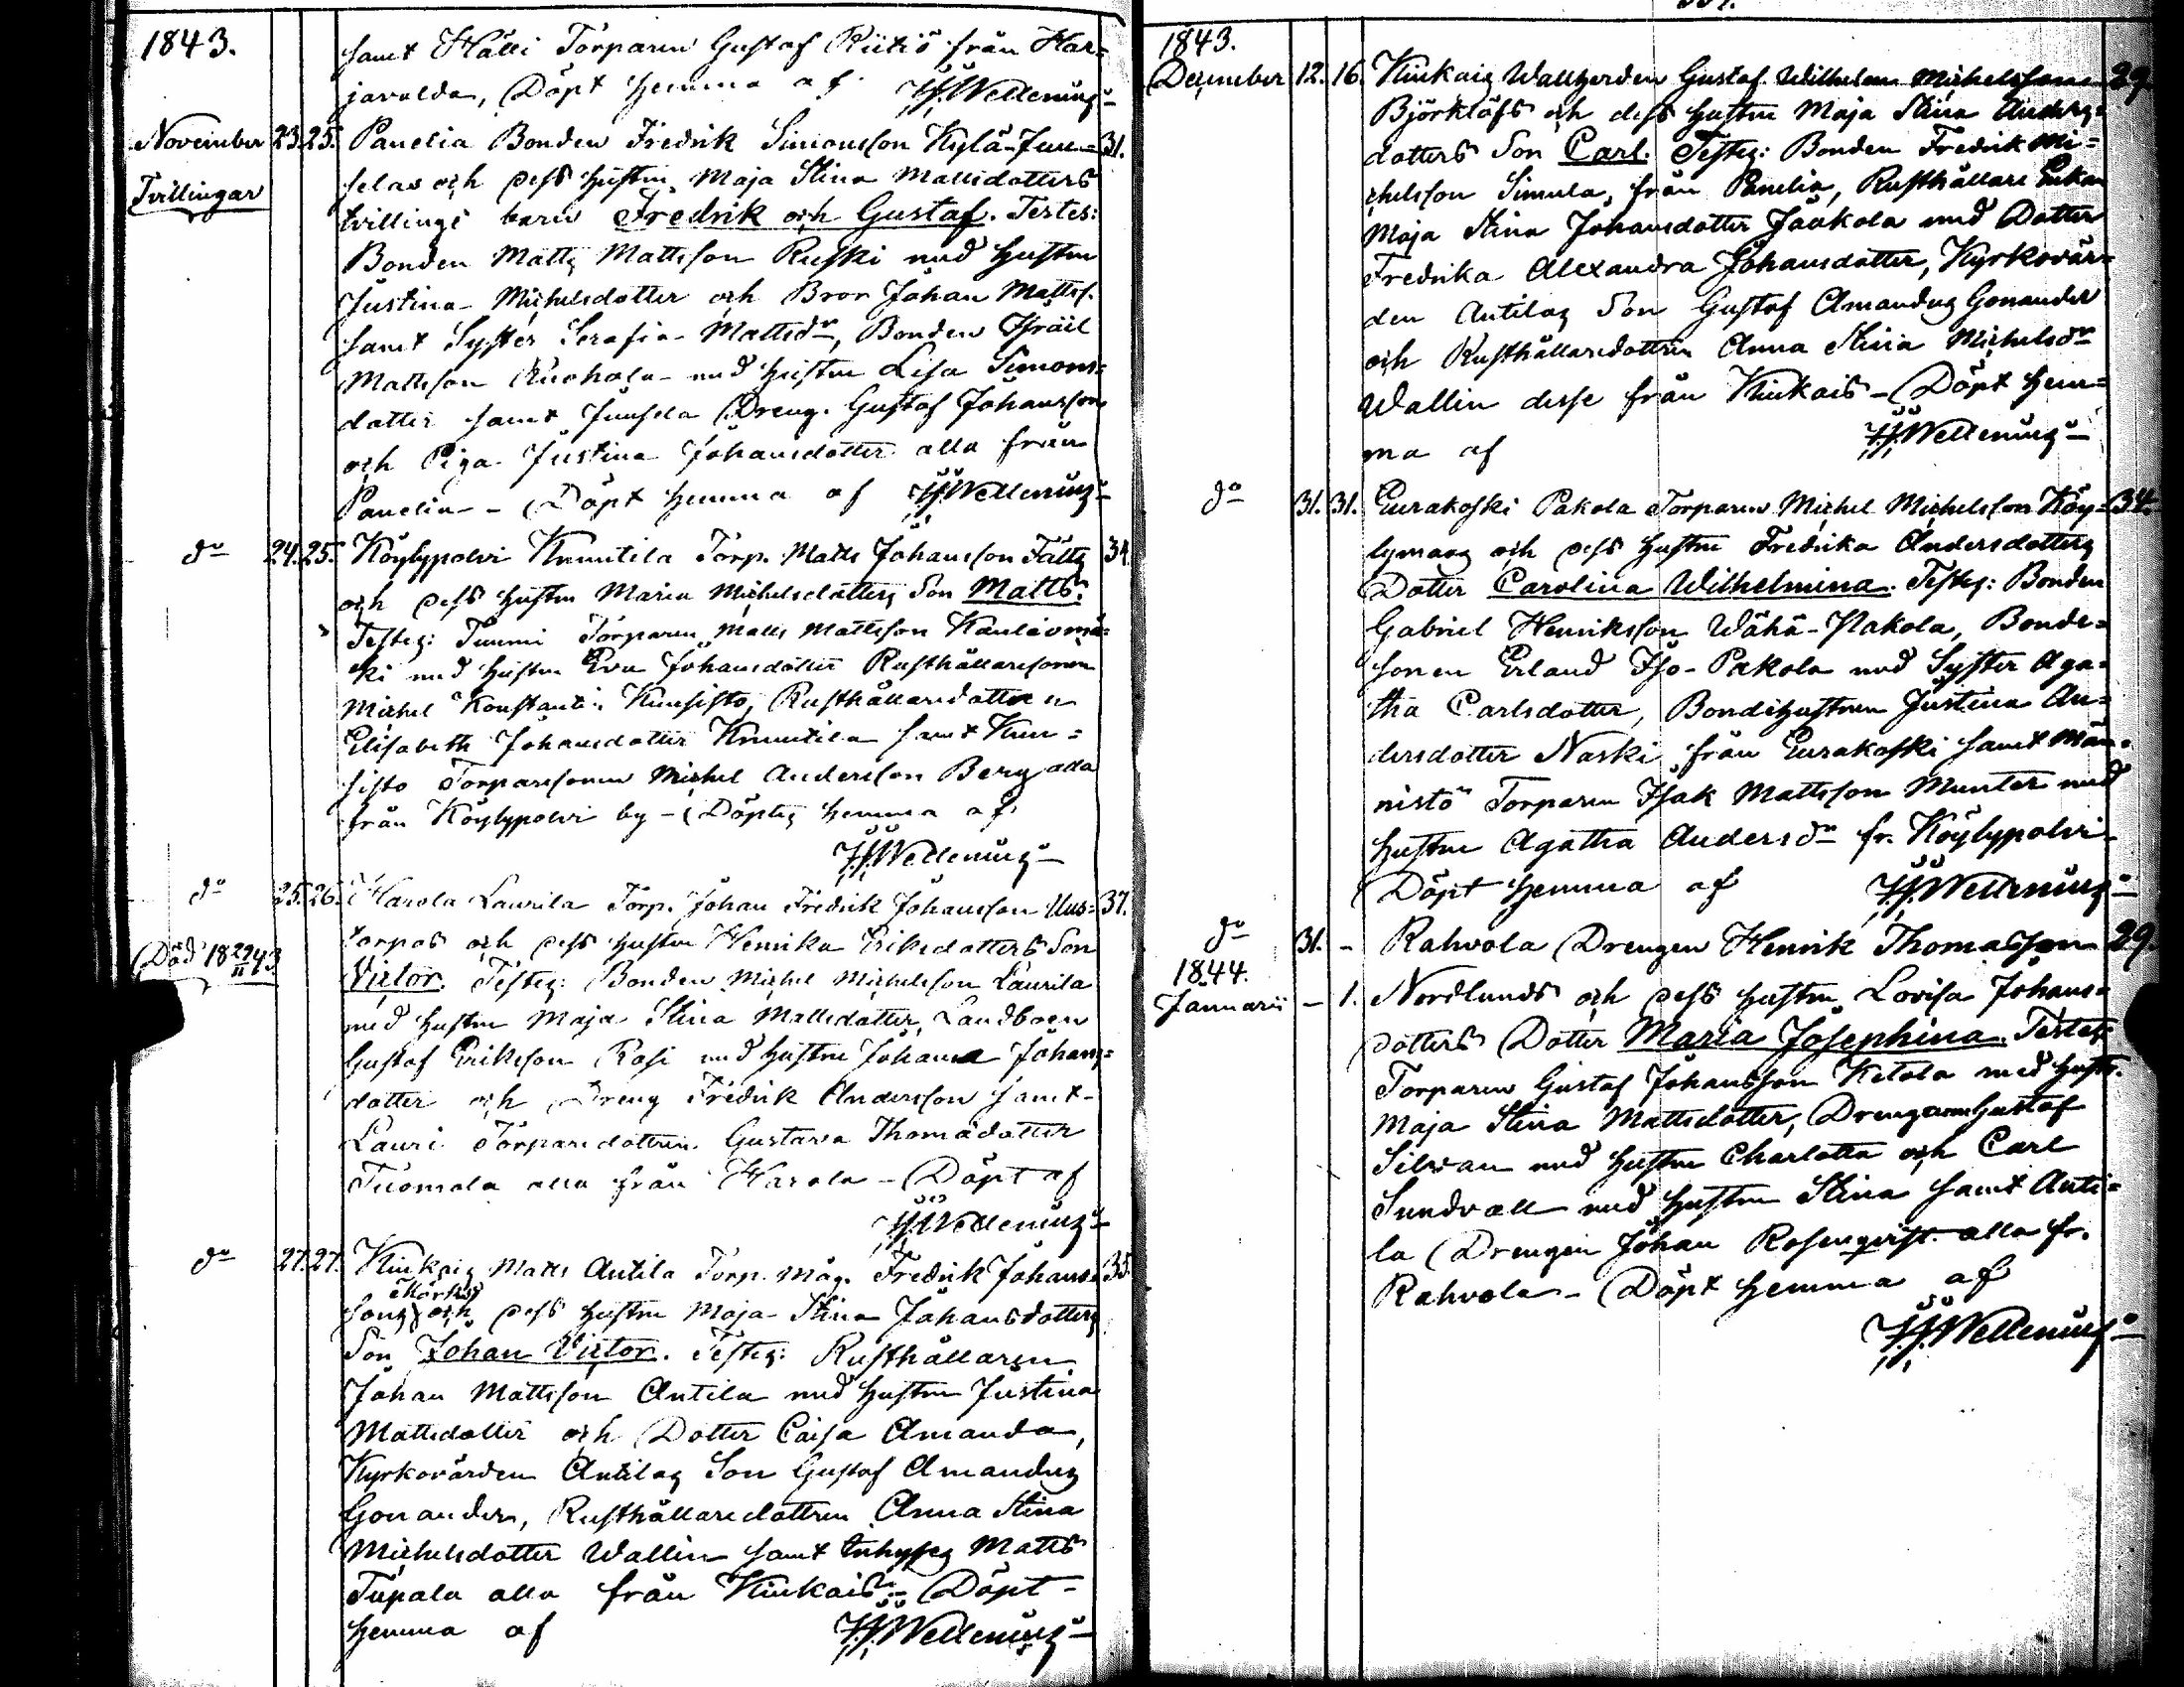 1843.
samt Hälli Torparen Gustaf Riitiö från Har=
javalda, Döpt hemma af H.H. Wellenius
November 23. 25. Panelia Bonden Fredrik Simonsson Kylä-Juu= 31.
Tvillingar
selas och dess hustru Maja Stina Mattsdotters
tvillings barn Fredrik och Gustaf. Testes:
Bonden Matts Mattsson Ruski med hustru
Justina Michelsdotter och Bror Johan Mattss.
samt Syster Serafia Mattsdr, Bonden Israël
Mattsson Ruohola med hustru Lisa Simons=
dotter samt Juusela Dreng. Gustaf Johansson
och Piga Justina Johansdotter alla från
Panelia - Döpt hemma af H.H. Wellenius
do 24. 25. Köylypolvi Knuutila Torp. Matts Johansson Fälts 34
och dess hustru Maria Michelsdotters Son Matts.
Testes: Tuumi Torparen Matts Mattsson Kaulavomä=
ki med hustru Eva Johansdotter Rusthållaresonen
Michel Konstantin Kuusisto, Rusthållaredottren
Elisabeth Johansdotter Knuutila samt Kuu=
sisto Torparesonen Michel Andersson Berg alla
från Köylypolvi by - Döptes hemma af
H.H. Wellenius
do 25. 26. Harola Laurila Torp. Johan Fredrik Johansson Uus= 37.
Död 18 29/11 43
torpas och dess hustru Henrika Eriksdotters Son
Victor. Testes: Bonden Michel Michelsson Laurila
med hustru Maja Stina Mattsdotter, Landboen
Gustaf Eriksson Rosi med hustru Johanna Johans=
dotter och Dreng Fredrik Andersson samt
Lauri Torparedottren Gustava Thomadotter
Tuomola alla från Harola - Döpt af
H.H. Wellenius
do 27. 27. Kiukais Matts Antila Torp. Måg. Fredrik Johans= 35.
sons och dess hustru Maja Stina Johansdotters
Son Johan Victor. Testes: Rusthållaren
Johan Mattsson Antila med hustru Justina
Mattsdotter och Dotter Caisa Amanda,
Kyrkovärden Antilas Son Gustaf Amandus
Gonander, Rusthållaredottren Anna Stina
Michelsdotter Wallin samt Inhyses Matts
Tupala alla från Kiukais - Döpt
hemma af H.H. Wellenius
1843.
December 12. 16. Kiukais Vallherden Gustaf Wilhelm Michelsson 29
Björklöfs och dess hustru Maja Stina Anders=
dotters Son Carl. Testes: Bonden Fredrik Mi=
chelsson Simula, från Panelia, Rusthållare Enkan
Maja Stina Johansdotter Jaakola med Dotter
Fredrika Alexandra Johansdotter, Kyrkovär=
den Antilas Son Gustaf Amandus Gonander
och Rusthållaredottren Anna Stina Michelsdr
Wallin desse från Kiukais - Döpt hem=
ma af H.H. Wellenius
do 31. 31. Eurakoski Pakola Torparen Michel Michelsson Köy= 34.
lymaas och dess hustru Fredrika Andersdotters
Dotter Carolina Wilhelmina. Testes: Bonden
Gabriel Henriksson Wähä-Pakola, Bonde=
sonen Erland Iso-Pakola med Syster Aga=
tha Carlsdotter, Bondehustrun Justina An=
dersdotter Naski från Eurakoski samt Män=
nistö Torparen Isak Mattsson Munter med
hustru Agatha Andersdr fr. Köylypolvi
Döpt hemma af H.H. Wellenius
do 31. - Rahvola Drengen Henrik Thomasson 29
1844.
Januarii - 1. Nordlunds och dess hustru Lovisa Johans=
dotters Dotter Maria Josephina. Testes:
Torparen Gustaf Johansson Ketola med hustr.
Maja Stina Mattsdotter, Drengarne Gustaf
Silvan med hustru Charlotta och Carl
Sundvall med hustru Stina samt Anti=
la Drengen Johan Rosenqvist alla fr.
Rahvola - Döpt hemma af
H.H. Wellenius